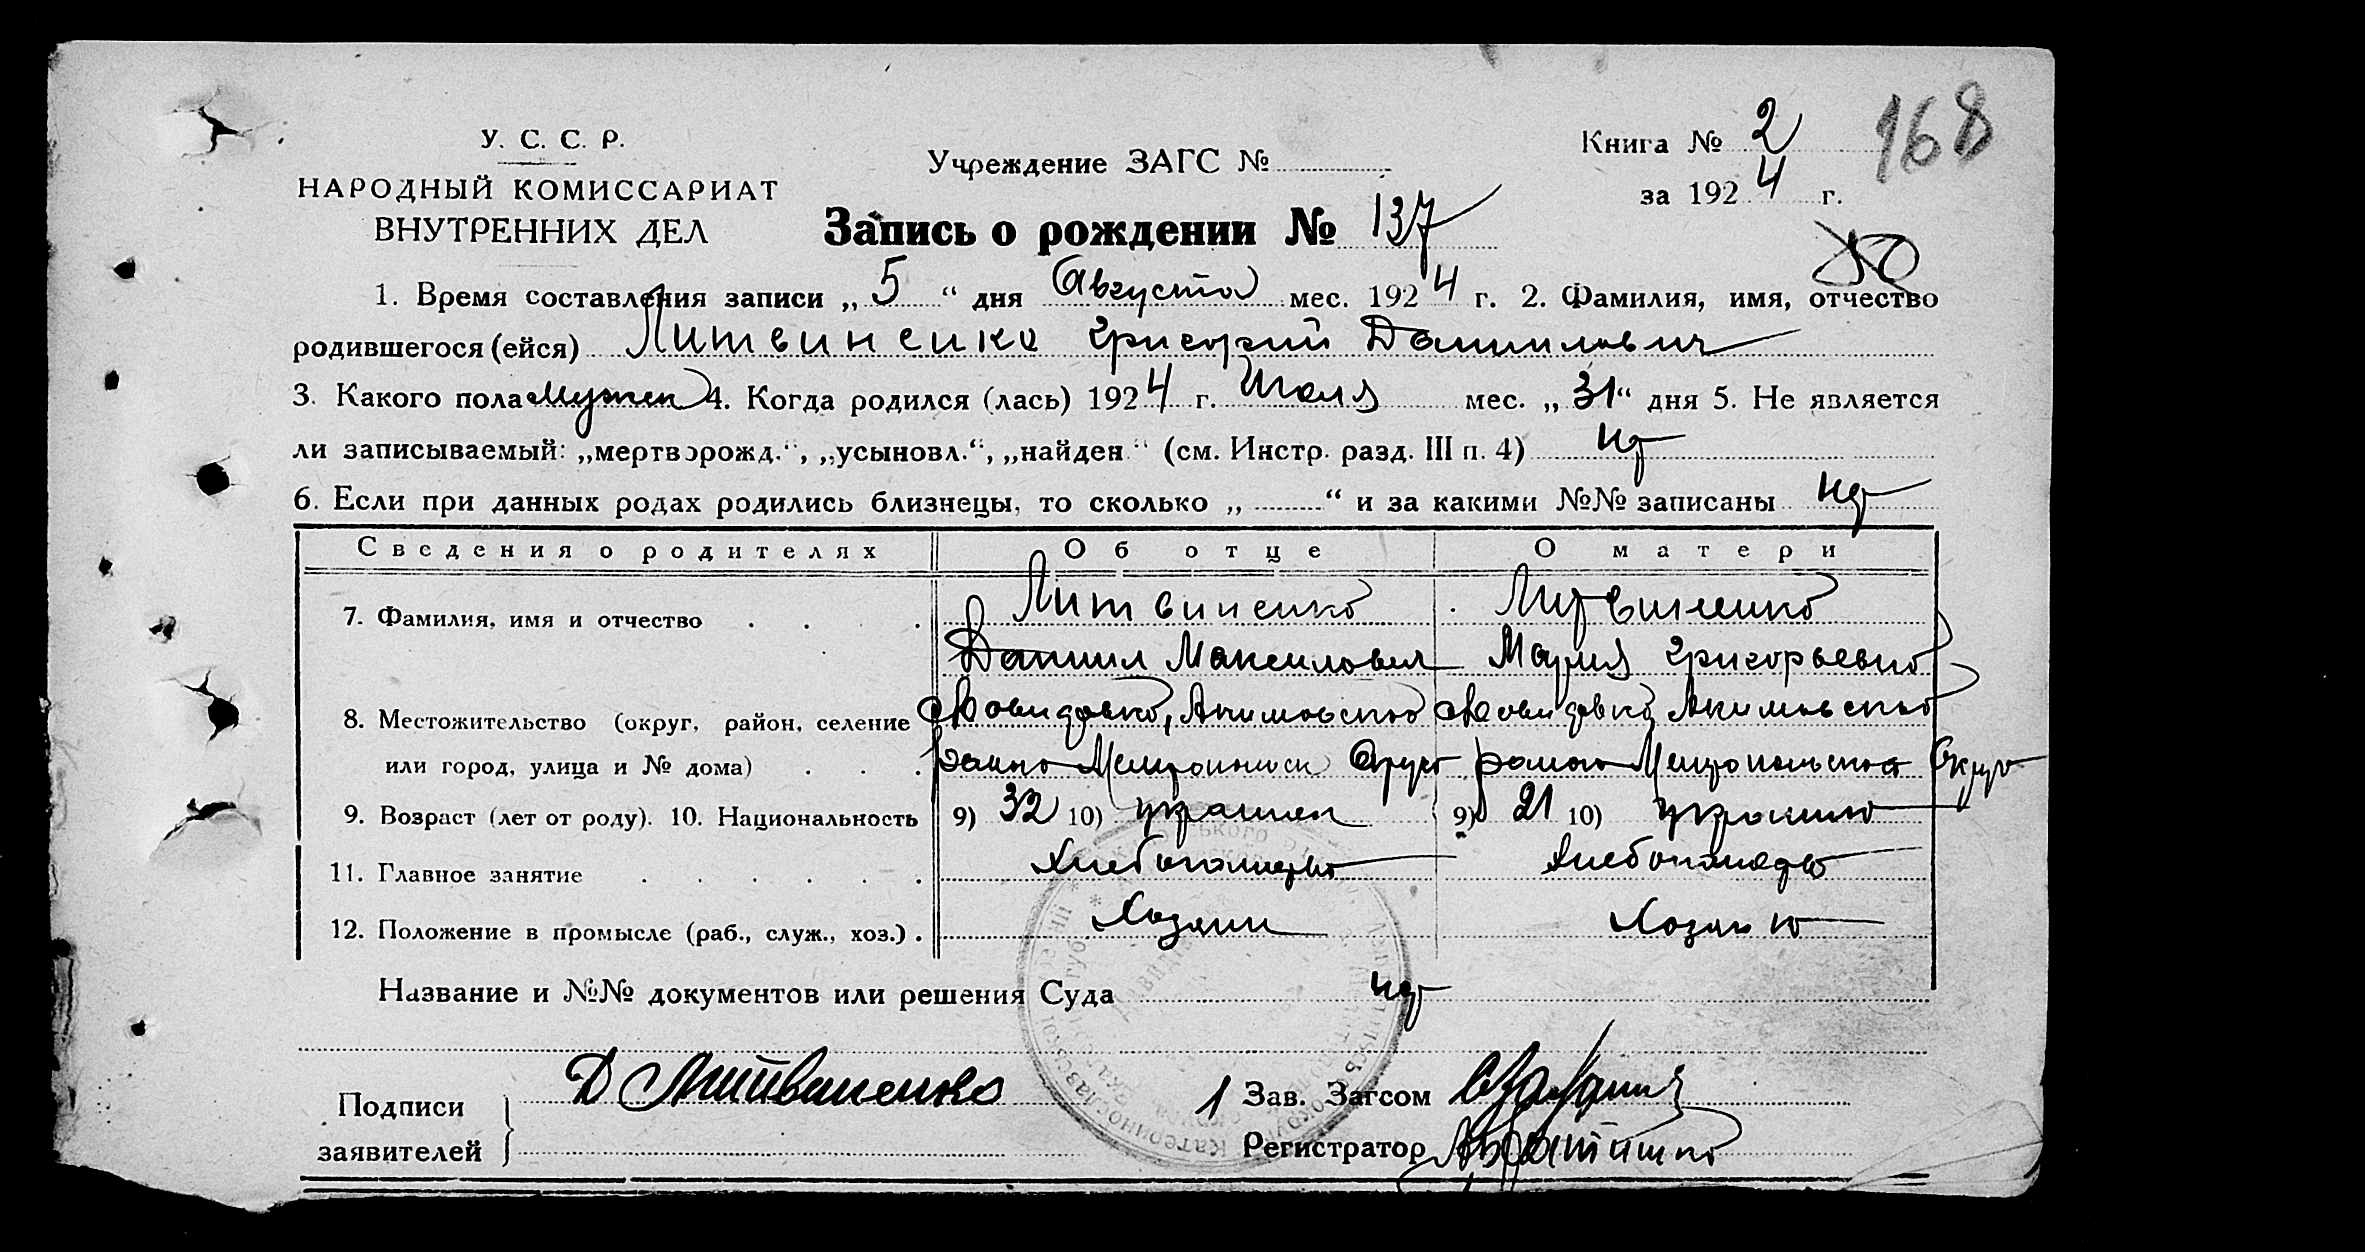 168
У. С. С. Р.
НАРОДНЫЙ КОМИССАРИАТ
ВНУТРЕННИХ ДЕЛ
Учреждение ЗАГС №
Книга № 2
за 1924 г.
Запись о рождении № 137
1. Время составления записи „ 5 “ дня Августа мес. 1924 г. 2. Фамилия, имя, отчество
родившегося (ейся) Литвиненко Григорий Данилович
3. Какого пола Мужск 4. Когда родился (лась) 1924 г. Июля мес. „ 31 “ дня 5. Не является
ли записываемый: „мертворожд.“, „усыновл.“, „найден“ (см. Инстр. разд. III п. 4)
6. Если при данных родах родились близнецы, то сколько „ “ и за какими №№ записаны
Сведения о родителях Об отце О матери
7. Фамилия, имя и отчество Литвиненко Литвиненко
Даниил Григорьевна Мария
8. Местожительство (округ, район, селение Акимовского Акимовского
или город, улица и № дома) района Округа района Округа
9. Возраст (лет от роду). 10. Национальность 9) 32 10) 9) 21 10)
11. Главное занятие Хлебопашество Хлебопашество
12. Положение в промысле (раб., служ., хоз.) Хозяин
Название и №№ документов или решения Суда
Подписи заявителей Д Литвиненко
1 Зав. Загсом
Регистратор